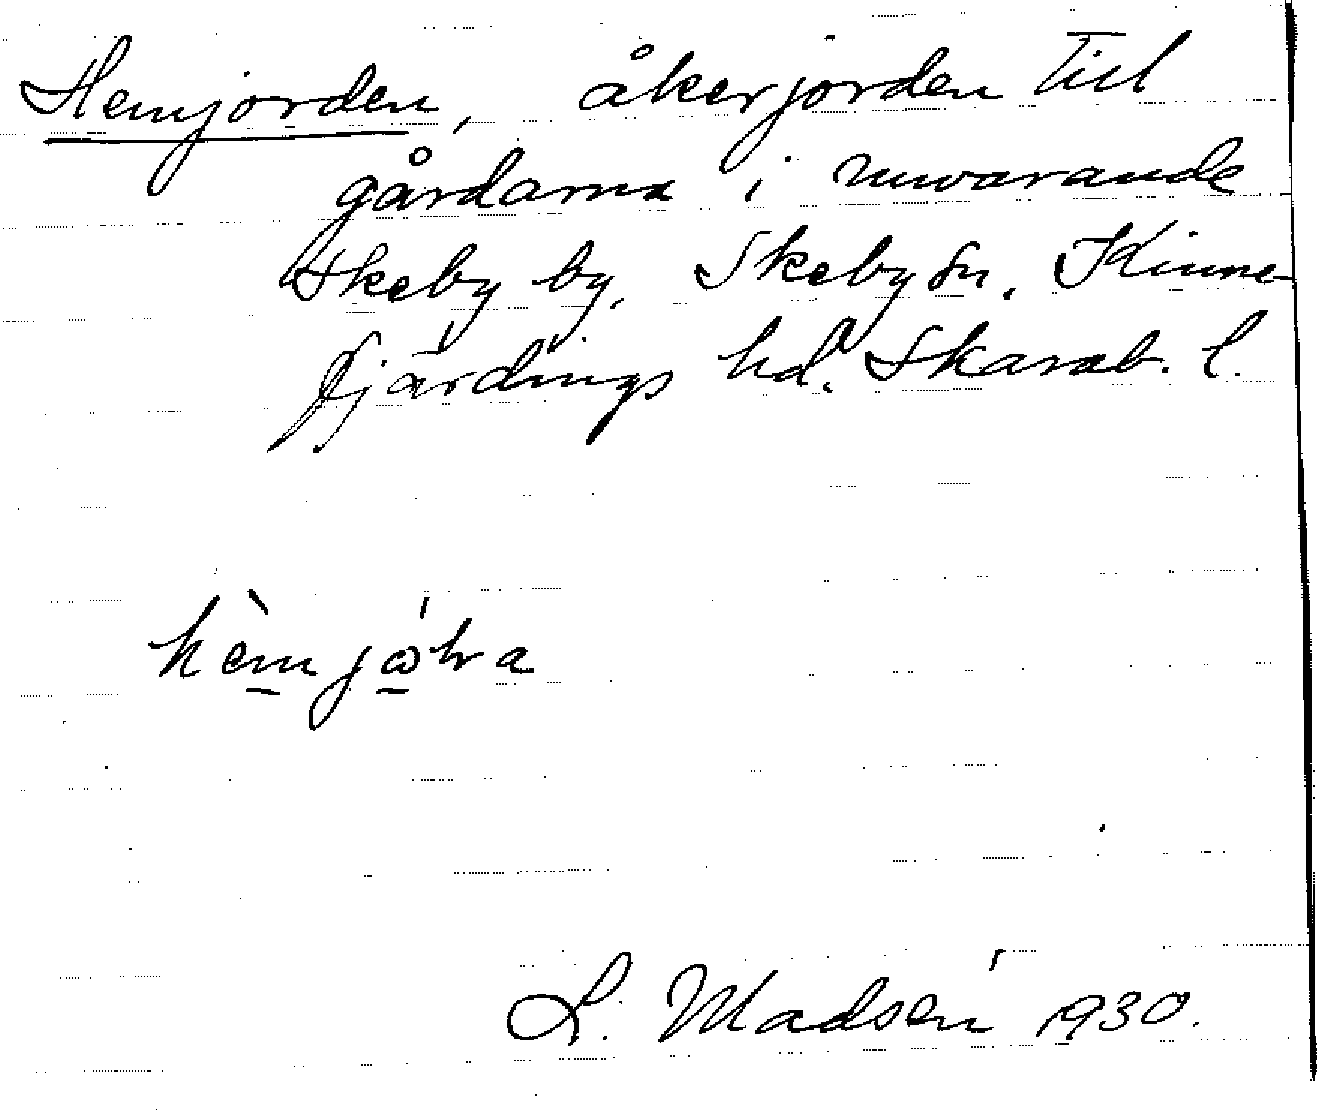 Hemjorden, åkerjorden till
gårdarna i nuvarande
Skeby by, Skeby sn, Kinne-
fjärdings hd. Skarab. l.
L. Madsén 1930.